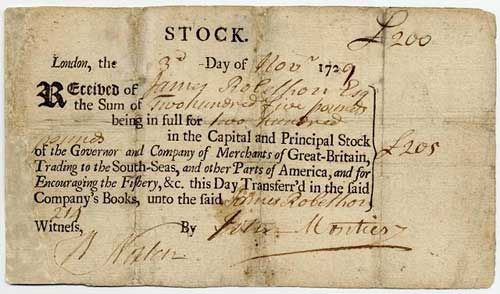 STOCK.
£200
London, the 3d Day of Novr 1729
REceived of James Robethon Esq
the Sum of two hundred & five pounds
being in full for two hundred
pounds in the Capital and Principal Stock
of the Governor and Company of Merchants of Great-Britain, £205
Trading to the South-Seas, and other Parts of America, and for
Encouraging the Fiſhery, &c. this Day Transferr'd in the said
Company's Books, unto the said James Robethon
Witneſs, By John